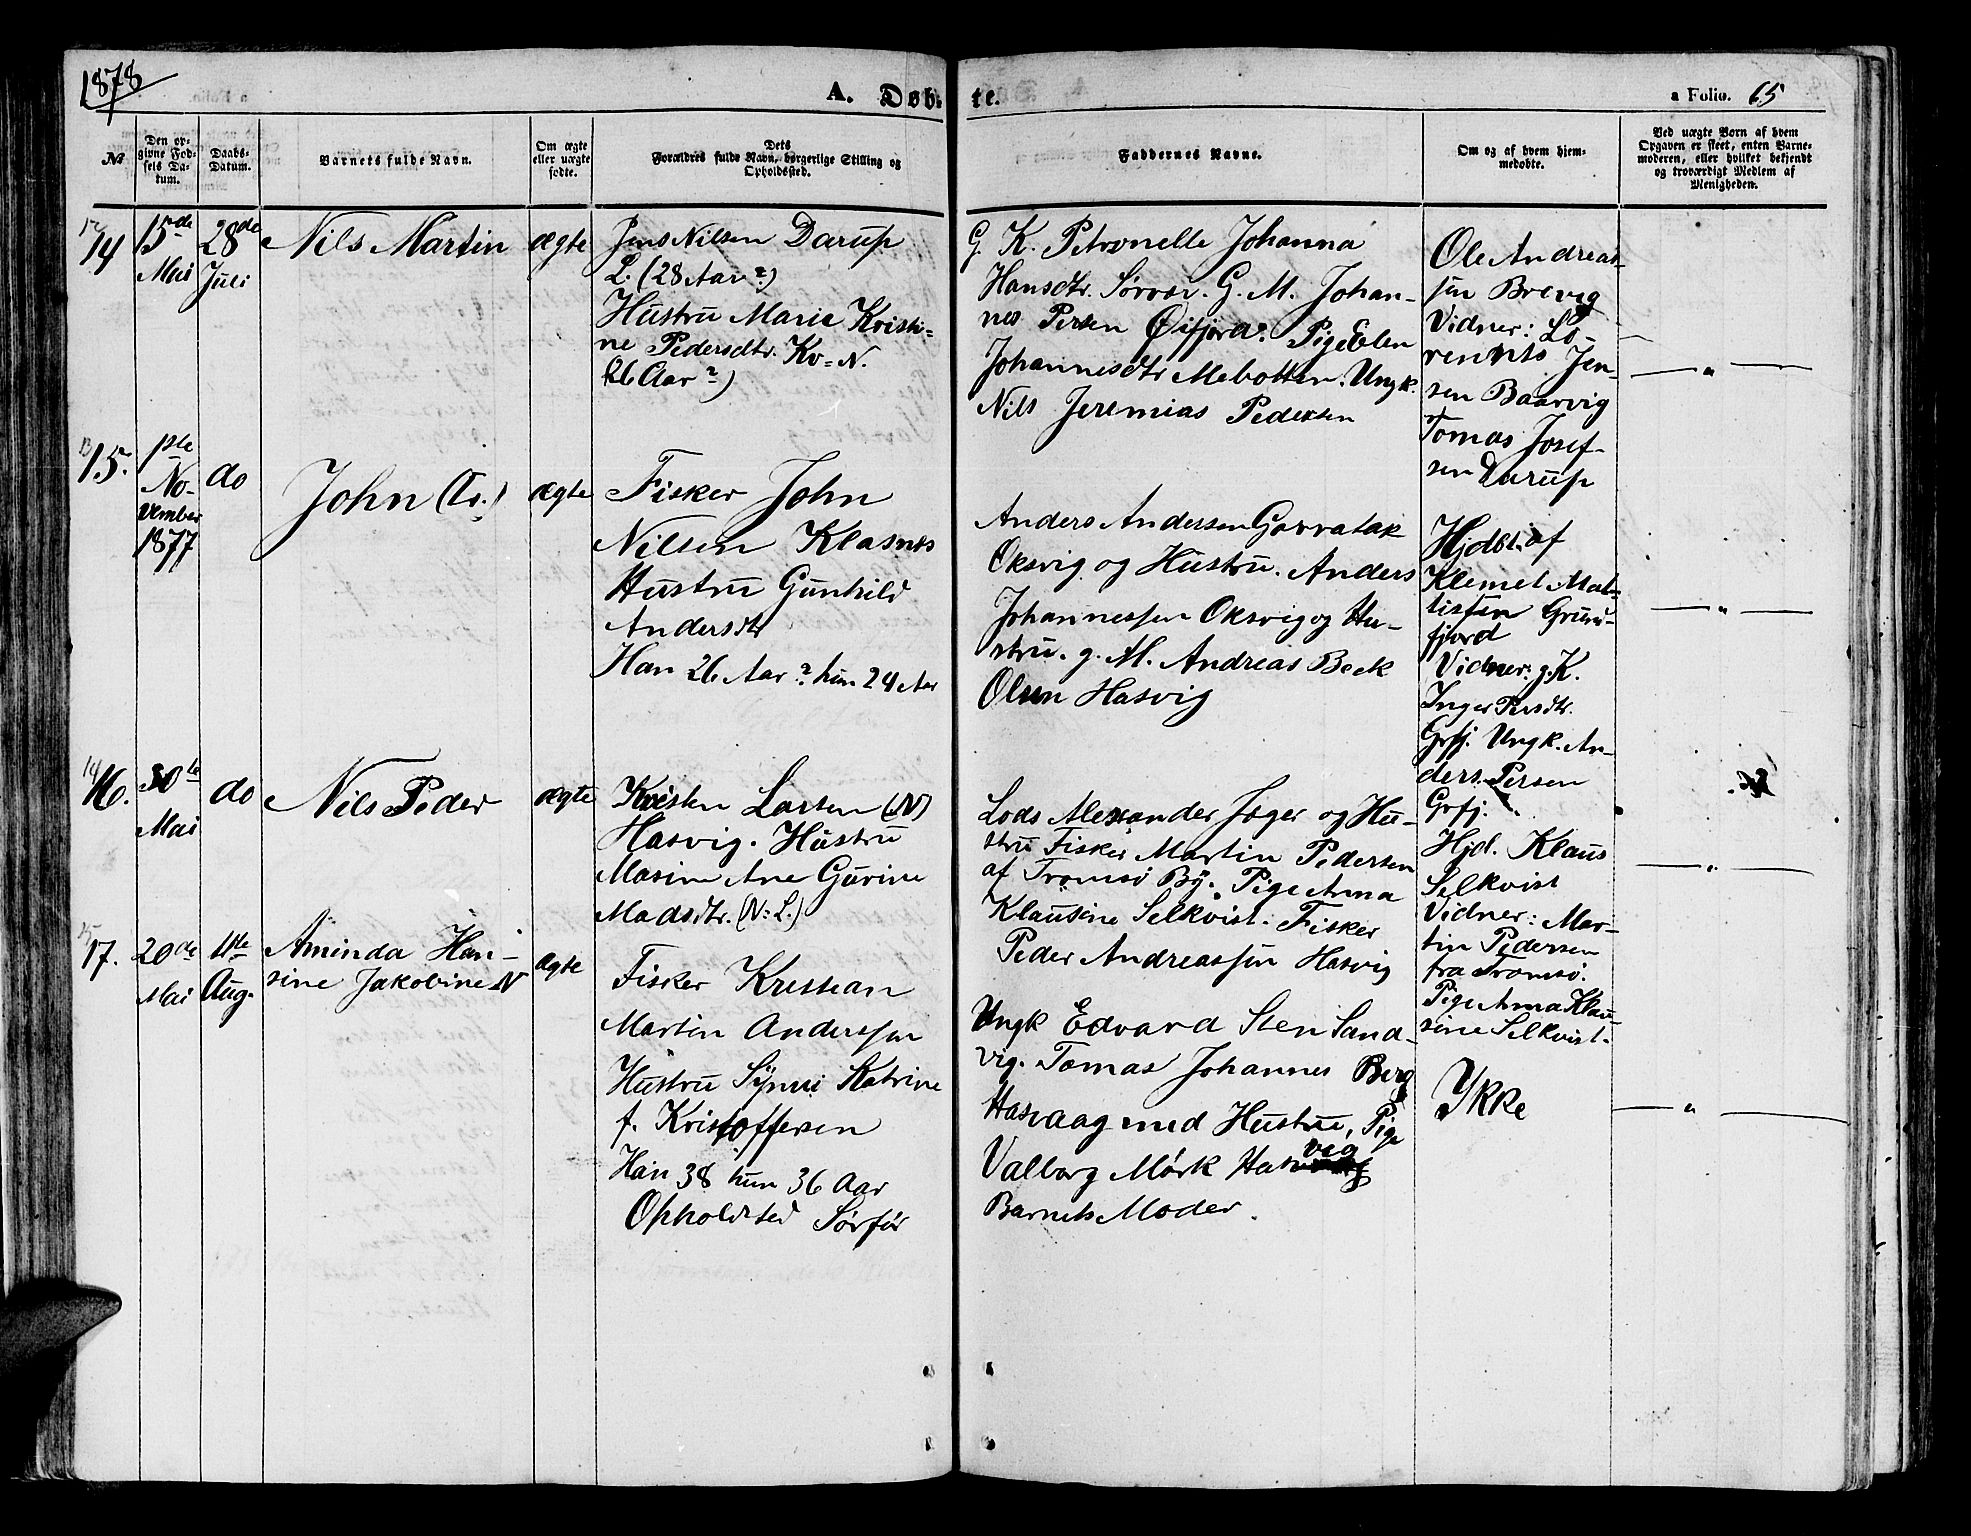 1878
A. Døb-
te.
a Folio. 65
No
Den op-
givne Fød-
sels Da-
tum.
Daabs-
Datum.
Barnets fulde Navn.
Om ægte
eller uægte
fødte.
Dets
Forældres fulde Navn, borgerlige Stilling og
Opholdssted.
Faddernes Navne.
Om og af hvem hjem-
medøbte.
Ved uægte Børn af hvem
Opgaven er skeet, enten Barne-
moderen, eller hvilket bekjendt
og troværdigt Medlem af
Menigheden.
12
14
15de
Mai
28de
Juli
Nils Martin
ægte
Jens Nilsen Darup
L. (28 Aar?)
Hustru Marie Kristi-
ne Pedersdtr. Kv=N.
(26 Aar?)
G. K. Petronelle Johanna
Hansdtr. Sørvær. G. M. Johan-
nes Persen Øifjord. Pige Elen
Johannesdtr Mebotten. Ungk.
Nils Jeremias Pedersen
Ole Andreas-
sen Brevig
Vidner: Lo-
rents Jen-
sen Baarvig
Tomas Josef-
sen Darup
— " —
13
15.
1ste
No-
vember
1877
do
John
ægte
Fisker John
Nilsen Klasnes
Hustru Gunhild
Andersdtr
Han 26 Aar? hun 24 Aar
Anders Andersen Gavvatak
Oksvig og Hustru. Anders
Johannessen Oksvig og Hu-
stru. g. M. Andreas Beck
Olsen Hasvig
Hjdbt. af
Klemet Mat-
tisen Grun-
fjord
Vidner: g. K.
Inger Persdtr.
Grfj. Ungk. An-
ders Persen
Grfj.
— " —
14
16.
30te
Mai
do
Nils Peder
ægte
Kristen Larsen (N)
Hasvig. Hustru
Masine Ane Gurine
Madsdtr. (N: L.)
Lods Alexander Jæger og Hu-
stru Fisker Martin Pedersen
af Tromsø By. Pige Anna
Klausine Selkvist. Fisker
Peder Andreassen Hasvig
Hjd. Klaus
Selkvist
Vidner: Mar-
tin Pedersen
fra Tromsø.
Pige Anna Klau-
sine Selkvist.
— " —
15
17.
20de
Mai
4de
Aug.
Aminda Han-
sine Jakobine N
ægte
Fisker Kristian
Martin Anderssen
Hustru Synni Katrine
f. Kristoffersen
Han 38 hun 36 Aar
Opholdsted Sørfjr
Ungk Edvard Sten Sand-
vig. Tomas Johannes Berg
Hasvaag med Hustru, Pige
Valborg Mørk Hasvig
Barnets Moder.
Ykke
— " —